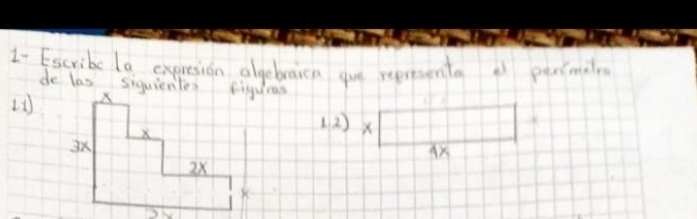 1- Escribe la expresión algebraica que representa el perímetro
de las siguientes figuras
1.1) x
1.2) x
x
3x
4x
2x
x